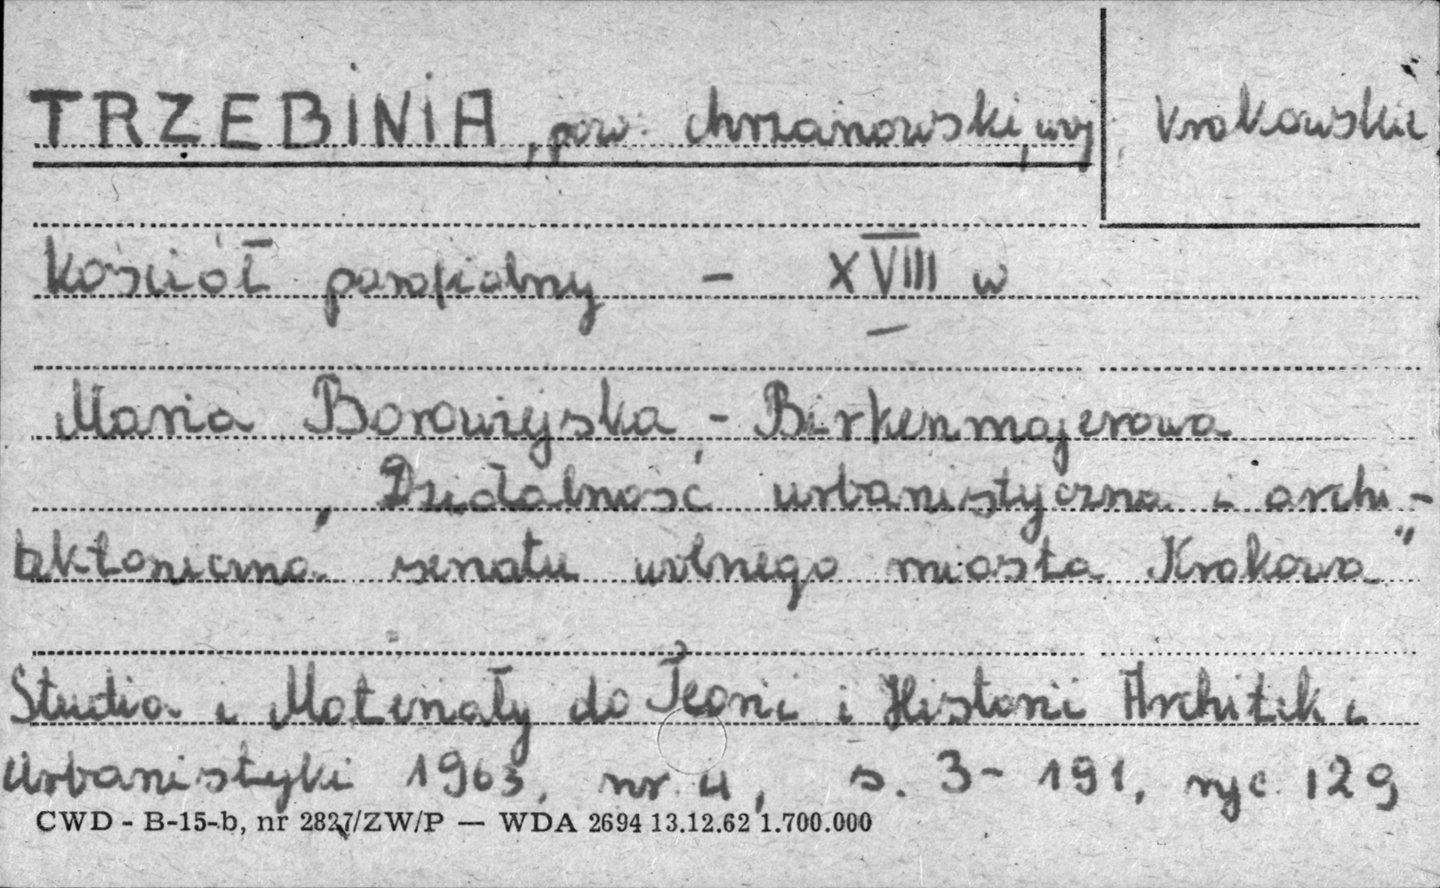 TRZEBINIA, pow. chrzanowski, woj. krakowskie
kościół parafialny - XVIII w
Maria Borowiejska - Birkenmajerowa
"Działalność urbanistyczna i archi-
tektoniczna senatu wolnego miasta Krakowa"
Studia i Materiały do Teorii i Historii Architek i
Urbanistyki 1963, nr. 4, s. 3-191, ryc 129
CWD - B-15-b, nr 2827/ZW/P — WDA 2694 13.12.62 1.700.000